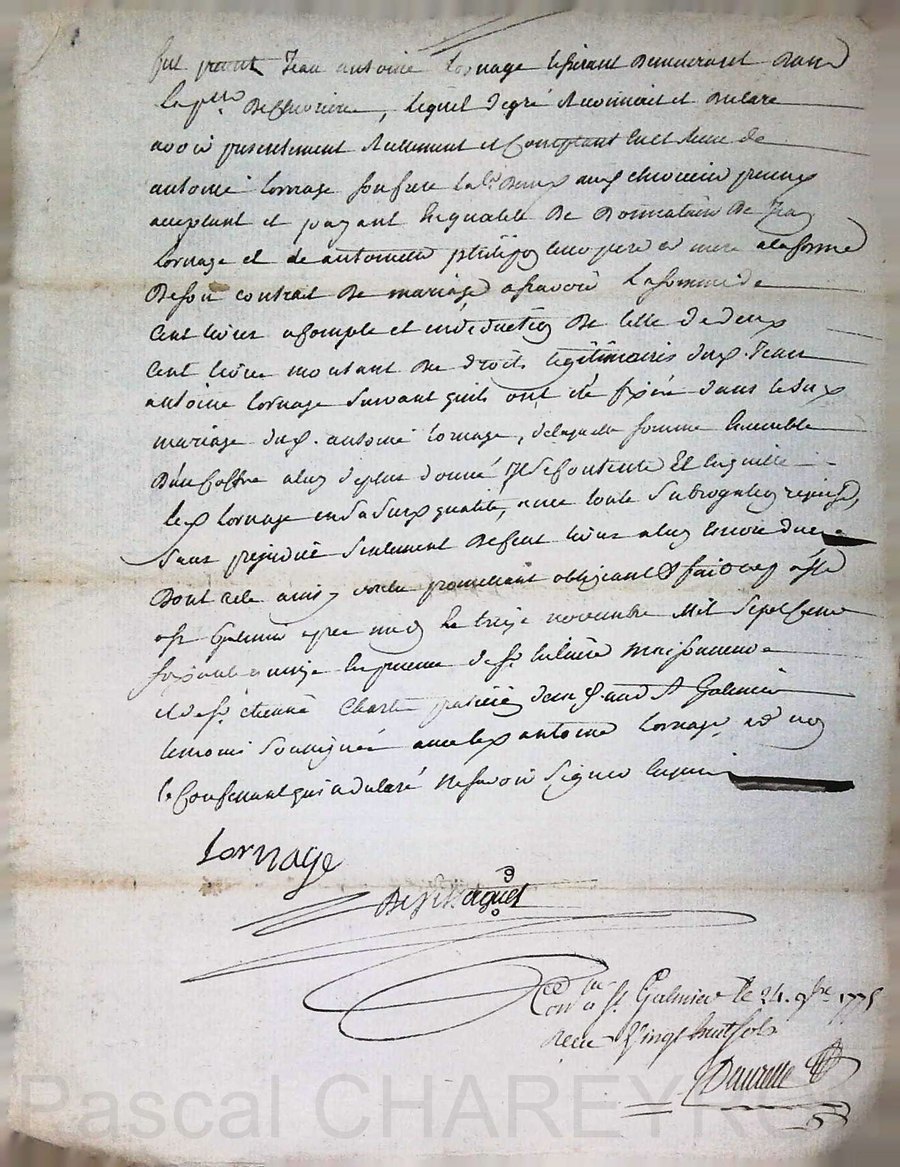 fut present Jean antoine Lornage tisserant demeurant dans
la p.sse de chevrieres, lequel degré reconnoit et declare
avoir presentement reellement et Comptant eu et receu de
antoine Lornage son frere lab.r dud. chevrieres present
acceptant et payant en qualité de donnataire de Jean
Lornage et de antoinette ses pere et mere a la forme
de son contrat de mariage asçavoir la somme de
Cent livres acompte et en deduction de celle de deux
Cent livres montant des droits legitimaires dud. Jean
antoine Lornage suivant quils ont été fixés dans le sud.
mariage dud. antoine Lornage, de laquelle somme Ensemble
d'un Coffre aluy deplus donné Il se Contente Et en quitte
led. Lornage en sa sud. qualité, avec toute subrogation requise,
sans prejudice seulement de Cent livres aluy encore dues
Dont acte ainsy voulu promettant obligeant &c fait et passé
a S.t Galmier apres midy le treize novembre Mil Sept Cent
soixante quinze En presence de s.r
et de s.r etienne Charles patissier dud. S.t Galmier
temoins soussignés avec led. antoine Lornage, et non
le Confessant qui a declaré ne scavoir signer Enquis
Lornage
Con.lé a S.t Galmier le 24. 9bre 1775
receu Vingt huit sols